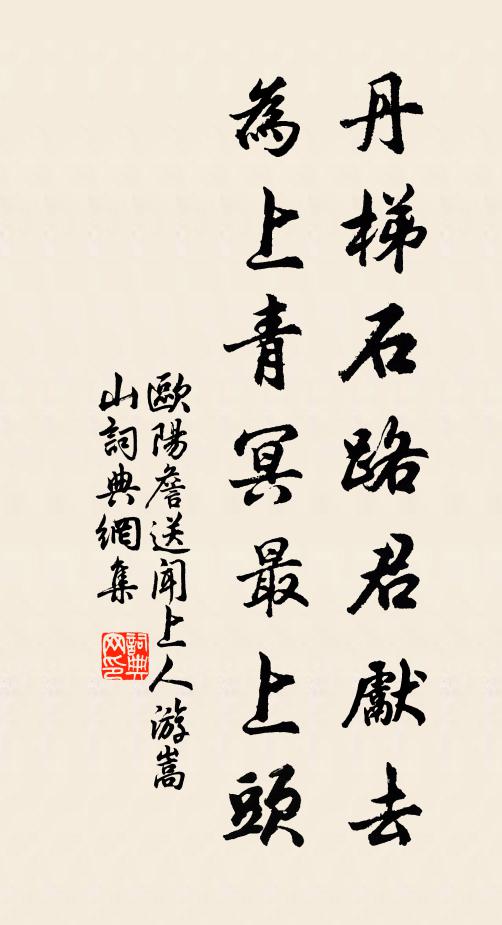 丹梯石路君獻去
為上青冥最上頭
歐陽詹送聞上人游嵩
山詞典網集
詞典網印